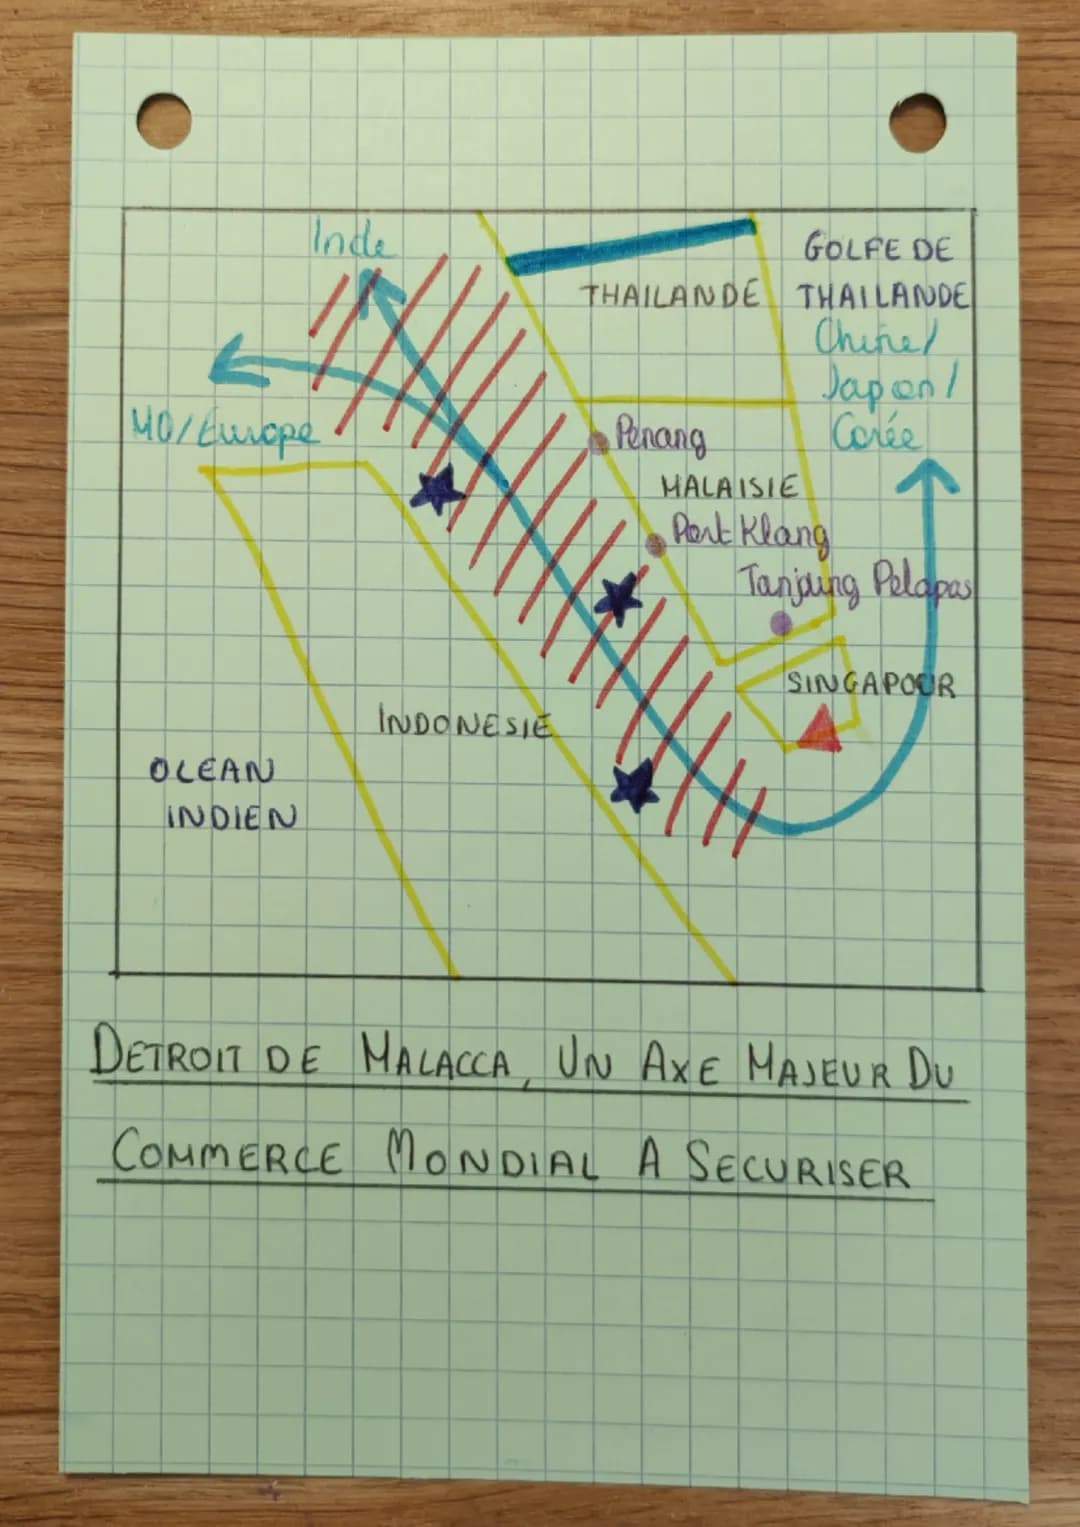 Inde
GOLFE DE
THAILANDE
THAILANDE
Chine/
Japon/
Corée
MO/Europe
Penang
MALAISIE
Port Klang
Tanjung Pelapas
SINGAPOUR
INDONESIE
OCEAN
INDIEN
DETROIT DE MALACCA, UN AXE MAJEUR DU
COMMERCE MONDIAL A SECURISER